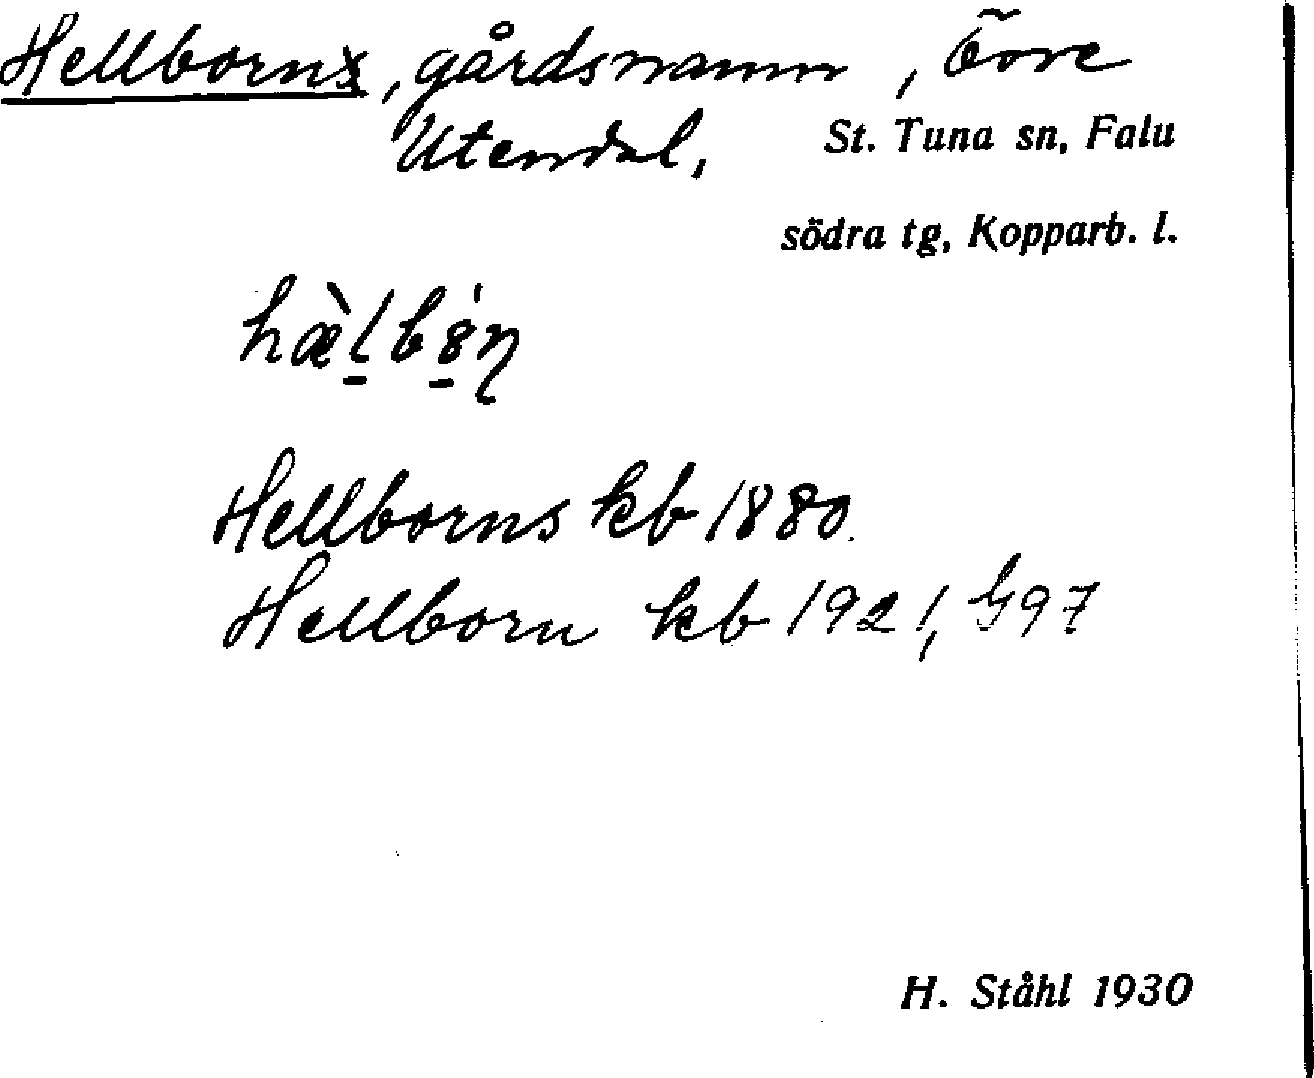 Hellborns, gårdsnamn, Övre
Utendal, St. Tuna sn, Falu
södra tg, Kopparb. l.
hæ̀l̠bȣ̠́ɳ
Hellborns kb 1880.
Hellborn kb 1921, G97
H. Ståhl 1930